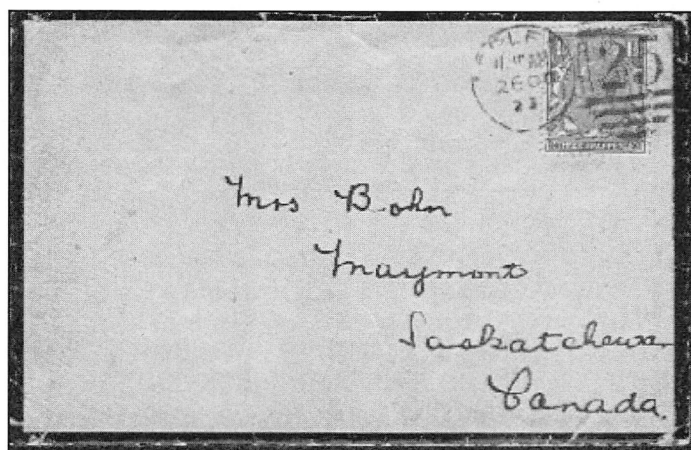 Mrs Bohn
Maymont
Saskatchewan
Canada.